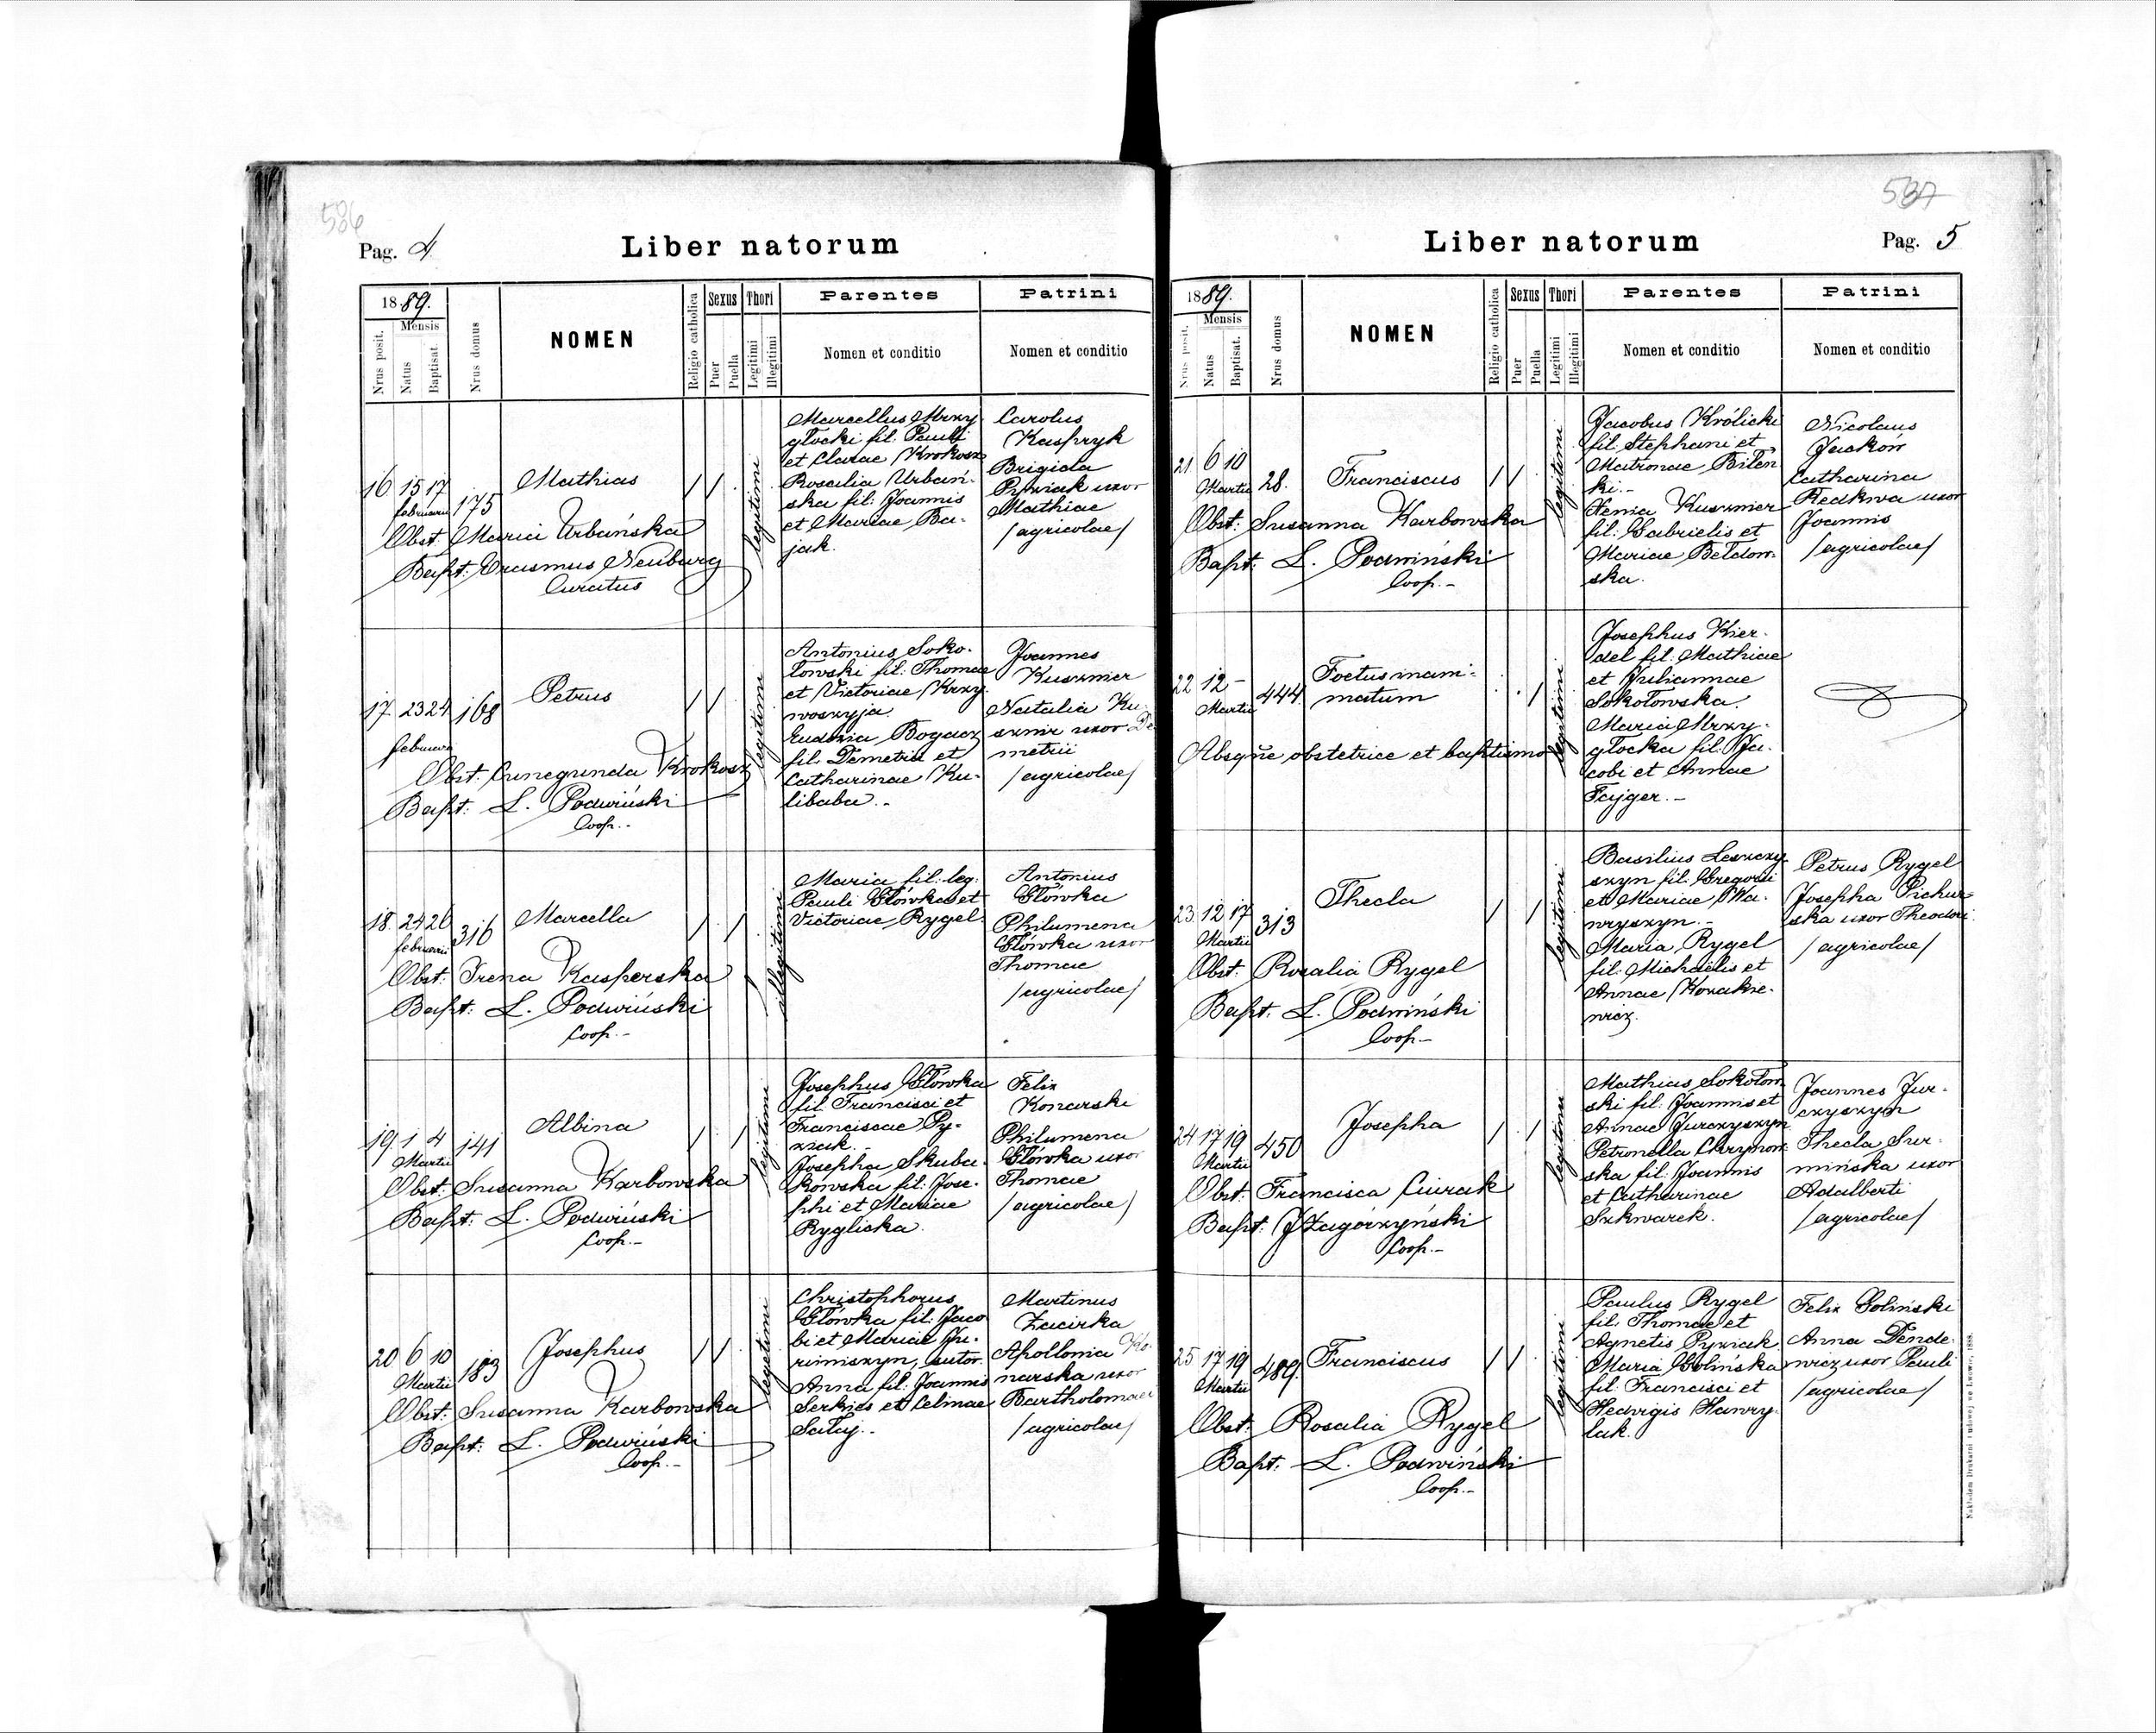 586
Pag. 4
Liber natorum
1889.
Mensis
Nrus posit.
Natus
Baptisat.
Nrus domus
NOMEN
Religio catholica
Sexus
Puer
Puella
Thori
Legitimi
Illegitimi
Parentes
Nomen et conditio
Patrini
Nomen et conditio
16 15 17 februarii 175
Mathias
Obst. Maria Urbańska
Bapt: Erasmus Neuburg
Curatus
legitimi
Marcellus Mrzy-
głocki fil: Pauli
et Clarae Krokosz
Rosalia Urbań-
ska fil: Joannis
et Mariae Ba-
jak.
Carolus
Kaspryk
Brigida
Pyziak uxor
Mathiae
/agricolae/
17 23 24 februarii 168
Petrus
Obst. Cunegunda Krokosz
Bapt: L. Podwiński
Coop.-
legitimi
Antonius Soko-
łowski fil: Thomae
et Victoriae Krzy-
woszyja.
Eudoxia Bogacz
fil. Demetrii et
Catharinae Ku-
libaba.-
Joannes
Kuszmier
Natalia Ku-
szmir uxor De-
metrii
/agricolae/
18. 24 26 februarii 316
Marcella
Obst: Irena Kasperska
Bapt: L. Podwiński
Coop.-
illegitimi
Maria fil: leg:
Pauli Główka et
Victoriae Rygel
Antonius
Główka
Philumena
Główka uxor
Thomae
/agricolae/
19 1 4 Martii 141
Albina
Obst: Susanna Karbowska
Bapt: L. Podwiński
Coop.-
legitimi
Josephus Główka
fil. Francisci et
Franciscae Py-
ziak.-
Josepha Skuba-
kowska fil: Jose-
phi et Mariae
Rygliska.
Felix
Konarski
Philumena
Główka uxor
Thomae
/agricolae/
20 6 10 Martii 183
Josephus
Obst: Susanna Karbowska
Bapt: L. Podwiński
Coop.-
legitimi
Christophorus
Główka fil: Jaco
bi et Mariae
sutor.
Anna fil: Joannis
Serkies et Celinae
Martinus
Zacirka
Apollonia Ko-
narska uxor
Bartholomaei
/agricolae/
587
Liber natorum
Pag. 5
1889.
Mensis
Nrus posit.
Natus
Baptisat.
Nrus domus
NOMEN
Religio catholica
Sexus
Puer
Puella
Thori
Legitimi
Illegitimi
Parentes
Nomen et conditio
Patrini
Nomen et conditio
21 6 10 Martii 28.
Franciscus
Obst: Susanna Karbowska
Bapt: L. Podwiński
Coop.-
legitimi
Jacobus Królicki
fil: Stephani et
Matronae Biłeń
ki.-
Xenia Kuszmier
fil: Gabrielis et
Mariae Bełdow-
ska.
Nicolaus
Jaaków
Catharina
Redkwa uxor
Joannis
/agricolae/
22 12 - Martii 444
Foetus inani-
matum
Absque obstetrice et baptismo
legitimi
Josephus Kier-
del fil: Mathiae
et Juliannae
Sokołowska.
Maria Mrzy-
głocka fil: Ja-
cobi et Annae
Fajger.-
23 12 17 Martii 313
Thecla
Obst: Rosalia Rygel
Bapt. L. Podwiński
Coop.-
legitimi
Basilius Leszczy
szyn fil: Gregorii
et Mariae Wa-
wryszyn.-
Maria Rygel
fil: Michaëlis et
Annae Kozakie-
wicz.
Petrus Rygel
Josepha Pichur-
ska uxor Theodori
/agricolae/
24 17 19 Martii 450
Josepha
Obst: Francisca Ciurak
Bapt. J Zagórzyński
Coop.-
legitimi
Mathias Sokołow
ski fil: Joannis et
Annae Jurczyszyn
Petronella Chrypnow
ska fil: Joannis
et Catharinae
Szkwarek.
Joannes Jur-
czyszyn
Thecla Sur-
mińska uxor
Adalberti
/agricolae/
25 17 19 Martii 489.
Franciscus
Obst: Rosalia Rygel
Bapt. L. Podwiński
Coop.-
legitimi
Paulus Rygel
fil. Thomae et
Agnetis Pyziak
Maria Golińska
fil: Francisci et
Hedvigis Hawry-
luk.
Felix Goliński
Anna Dende-
wicz uxor Pauli
/agricolae/